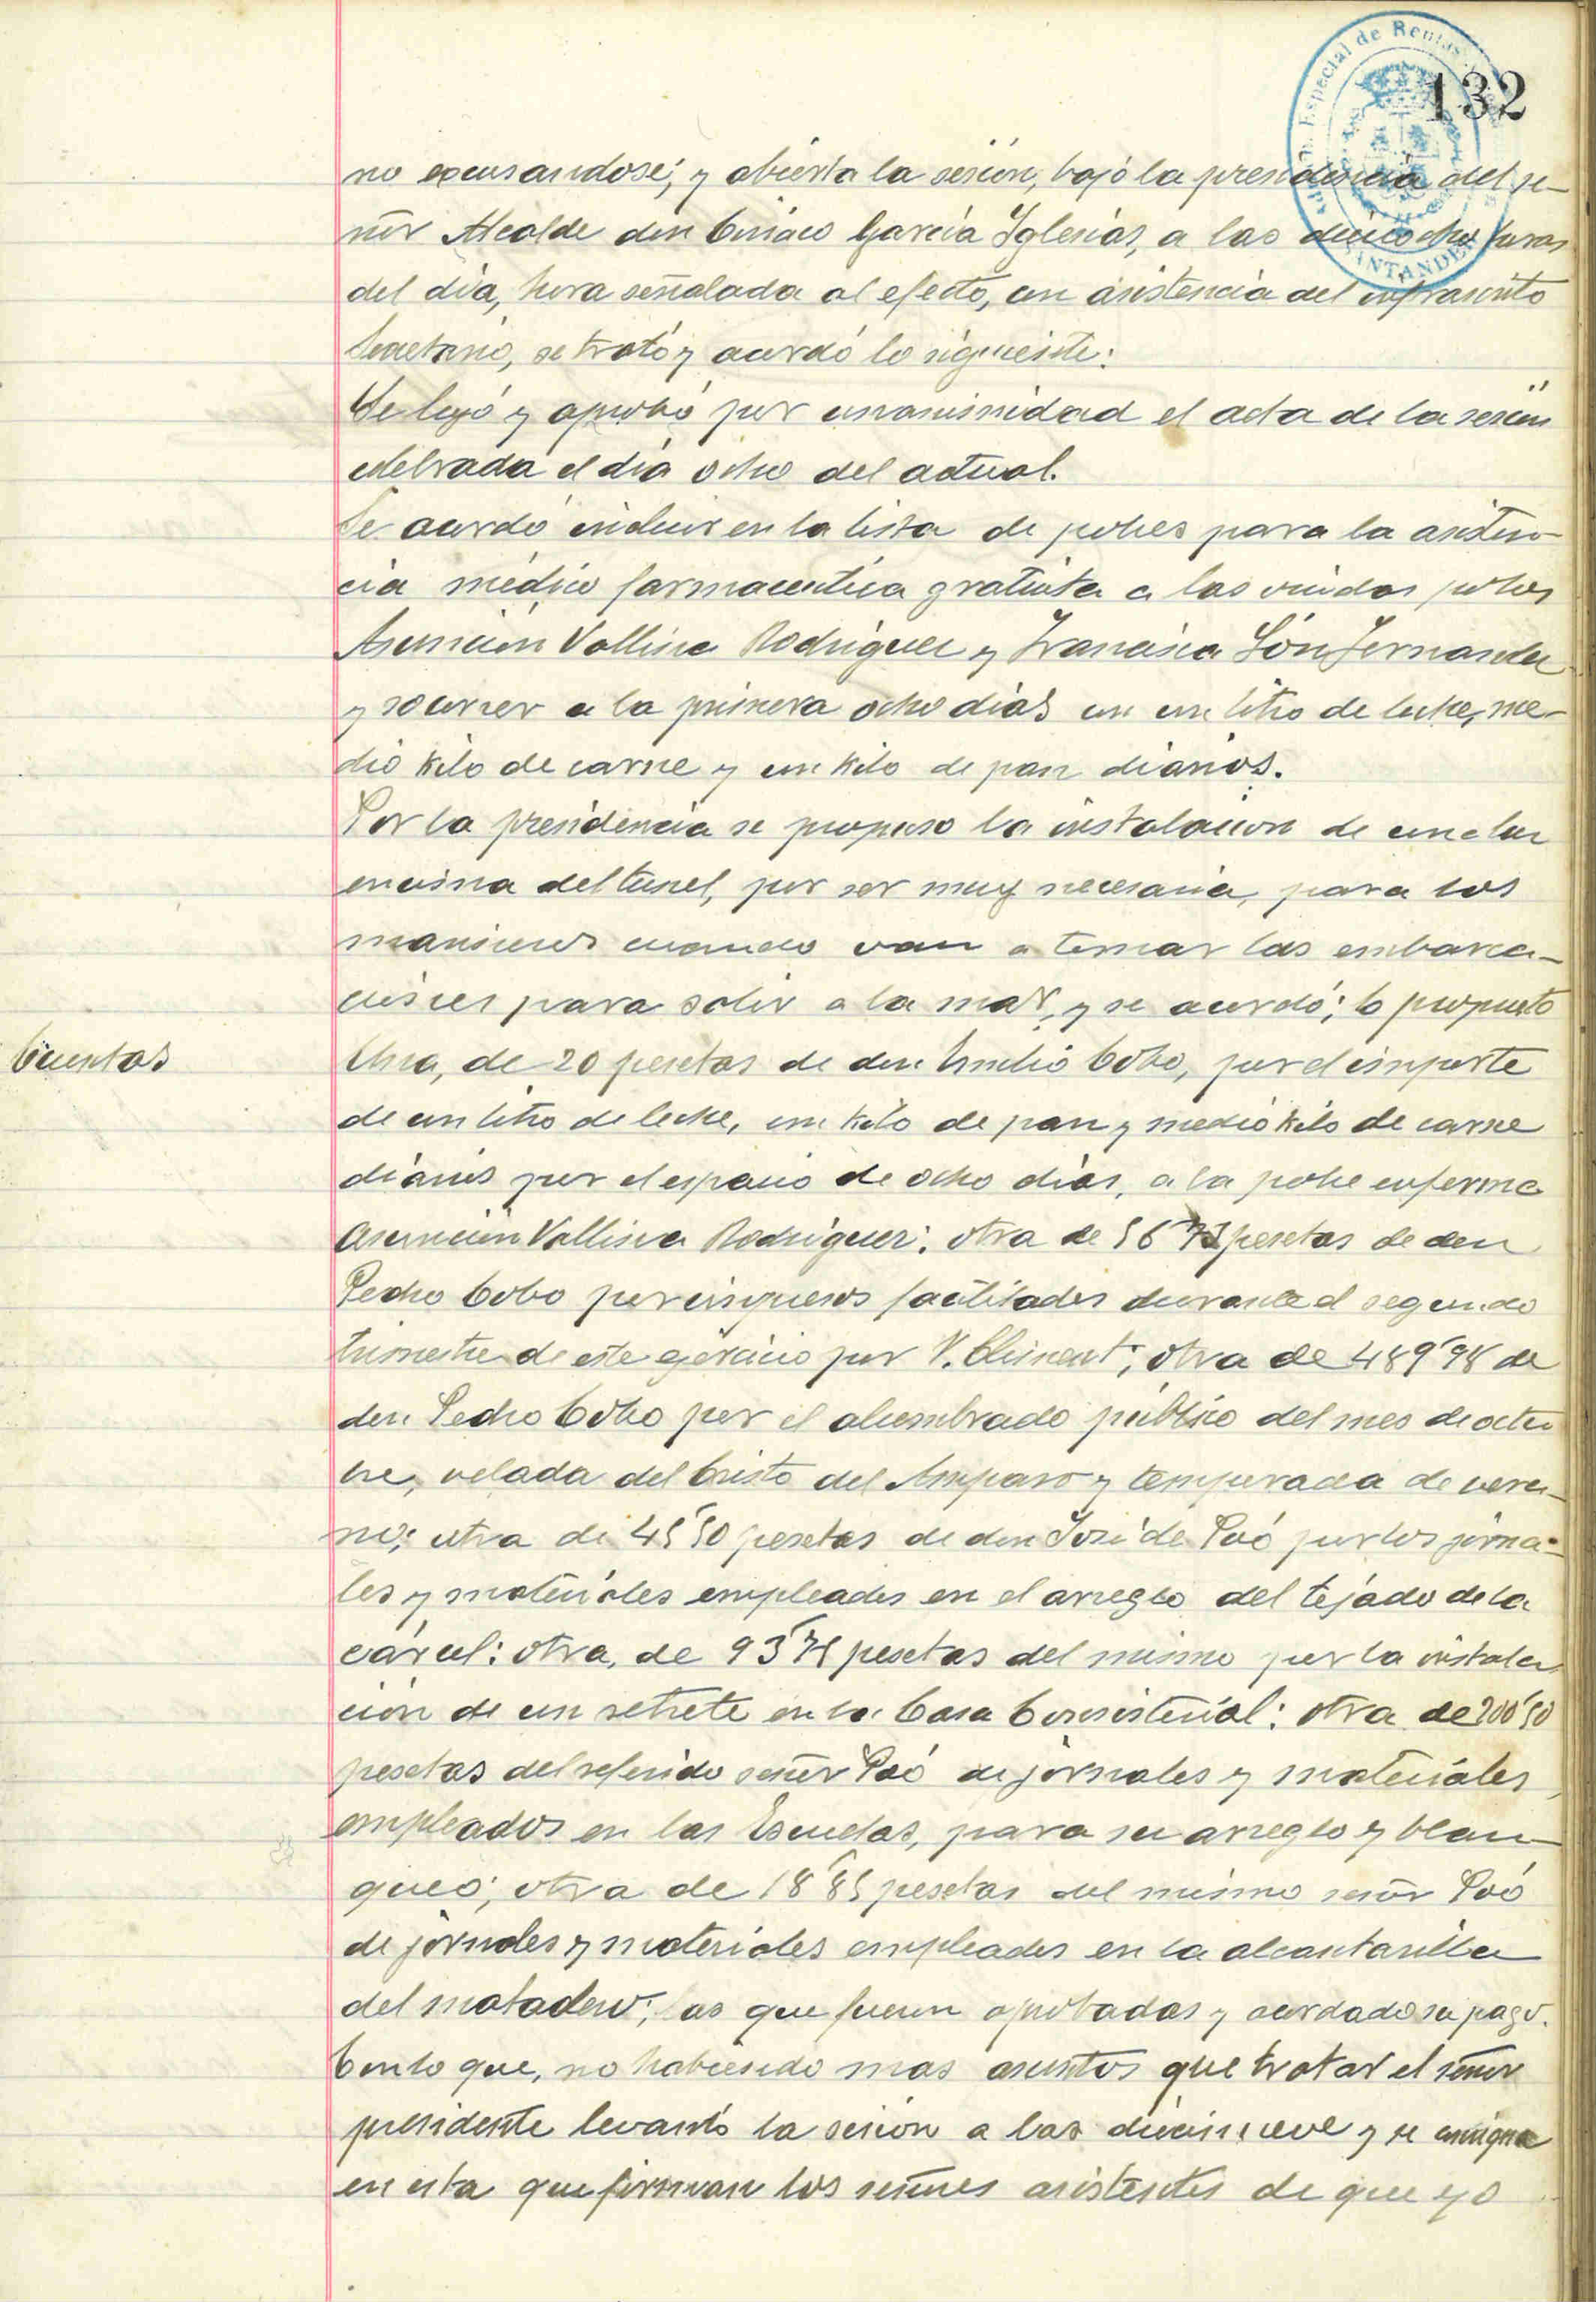 132
Especial de Rentas
SANTANDER
no excusandose; y abierta la sesión, bajo la presidencia del se-
ñor Alcalde don Ciriaco García Iglesias, a las dieciocho horas
del día, hora señalada al efecto, con asistencia del infrascrito
Secretario, se trató y acordó lo siguiente:
Se leyó y aprobó por unanimidad el acta de la sesión
celebrada el día ocho del actual.
Se acordó incluir en la lista de pobres para la asisten-
cia médico farmaceutica gratuita a las viudas pobres
Asunción Vallina Rodriguez y Francisca Fernandez
y socorrer a la primera ocho días con un litro de leche, me-
dio kilo de carne y un kilo de pan diarios.
Por la presidencia se propuso la instalación de una luz
encima del tunel, por ser muy necesaria, para los
marineros cuando van a tomar las embarca-
ciones para salir a la mar, y se acordó; lo propuesto
Cuentas
Una, de 20 pesetas de don Emilio Cobo, por el importe
de un litro de leche, un kilo de pan y medio kilo de carne
diarios por el espacio de ocho días, a la pobre enferma
Asunción Vallina Rodriguez; otra de pesetas de don
Pedro Cobo por impresos facilitados durante el segundo
trimestre de este ejercicio por V. Climent; otra de 489'98 de
don Pedro Cobo por el alumbrado público del mes de octu
bre, velada del Cristo del Amparo y temporada de vera-
no; otra de 45'50 pesetas de don José de Poó por los jorna-
les y materiales empleados en el arreglo del tejado de la
cárcel: otra, de pesetas del mismo por la instala
ción de un retrete en la Casa Consistorial: otra de 200'50
pesetas del referido señor Poó de jornales y materiales
empleados en las Escuelas, para su arreglo y blan-
queo; otra de 18'85 pesetas del mismo señor Poó
de jornales y materiales empleados en la alcantarilla
del matadero; las que fueron aprobadas y acordado su pago.
Con lo que, no habiendo mas asuntos que tratar el señor
presidente levantó la sesión a las diecinueve y se consigna
en esta que firman los señores asistentes de que yo